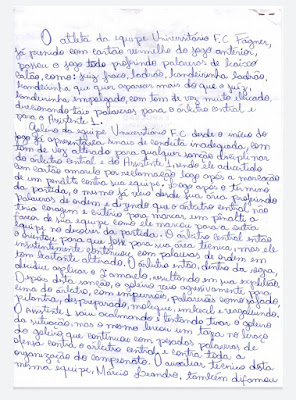 O atleta da equipe Universitário F.C. Fagner,
já punido com cartão vermelho do jogo anterior,
passou o jogo todo proferindo palavras de baixo
calão, como: juiz fraco, ladrão, bandeirinha ladrão,
bandeirinha que quer aparecer mais do que o juiz,
bandeirinha empolgado, com tom de voz muito elevado.
direcionando tais palavras para o árbitro central e
para o Assistente 1.
Goleiro da equipe Universitário F.C desde o início do
jogo já apresentava sinais de conduta inadequada, com
tom de voz alterado para qualquer sanção disciplinar
do árbitro central e do Assistente 1 sendo ele advertido
com cartão amarelo por reclamação logo após a marcação
de um pênalti contra sua equipe. Logo após o término
da partida, o mesmo já veio desde sua área proferindo
palavras de ordem e dizendo que o árbitro central não
teria coragem e critério para marcar um pênalti a
favor de sua equipe como ele marcou para a outra
equipe no decorrer da partida. O árbitro central então
o orientou para que fosse para sua área técnica, mas ele
insistentemente continuou com palavras de ordem em
tom bastante alterado. O árbitro então, dentro da regra,
decidiu aplicar o 2º amarelo, resultando em sua expulsão.
Depois desta sanção, o goleiro veio agressivamente para
cima do árbitro, com empurrões, palavras como safado,
pilantra, despreparado, moleque, imbecil e
O Assistente 1 saiu acalmando e tentando tirar o goleiro
da situação, mas o mesmo levou um tapa no braço
do goleiro que continuou com pesadas palavras de
ofensa contra o árbitro central, e contra toda a
organização do campeonato. O auxiliar técnico desta
mesma equipe, Márcio Leandro, também difamou